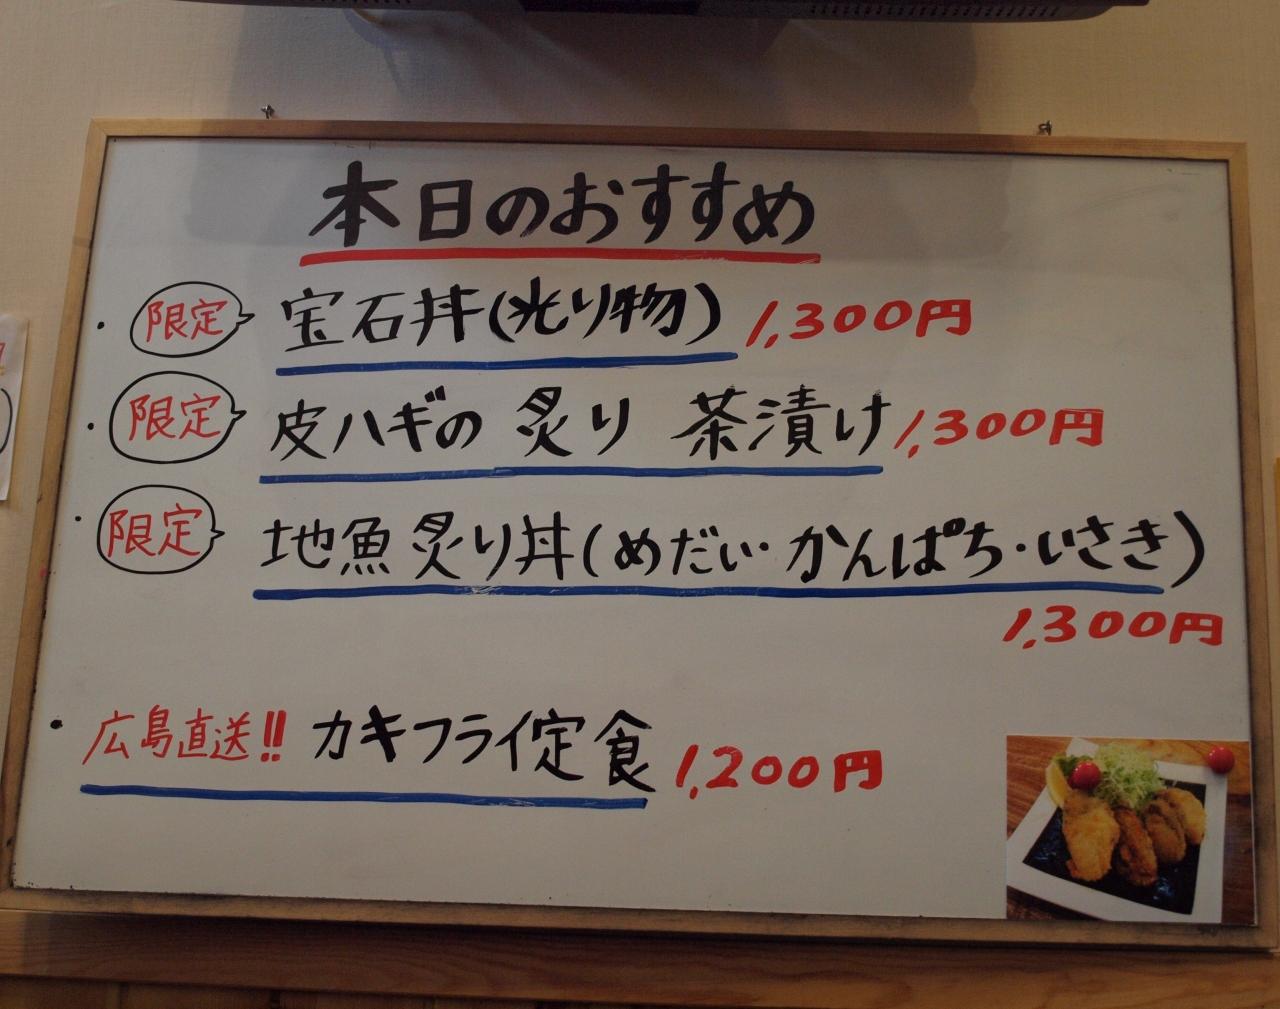 本日のおすすめ
・限定 宝石丼(光り物) 1,300円
・限定 皮ハギの 炙り 茶漬け 1,300円
・限定 地魚炙り丼(めだい・かんぱち・いさき)
1,300円
・広島直送!! カキフライ定食 1,200円